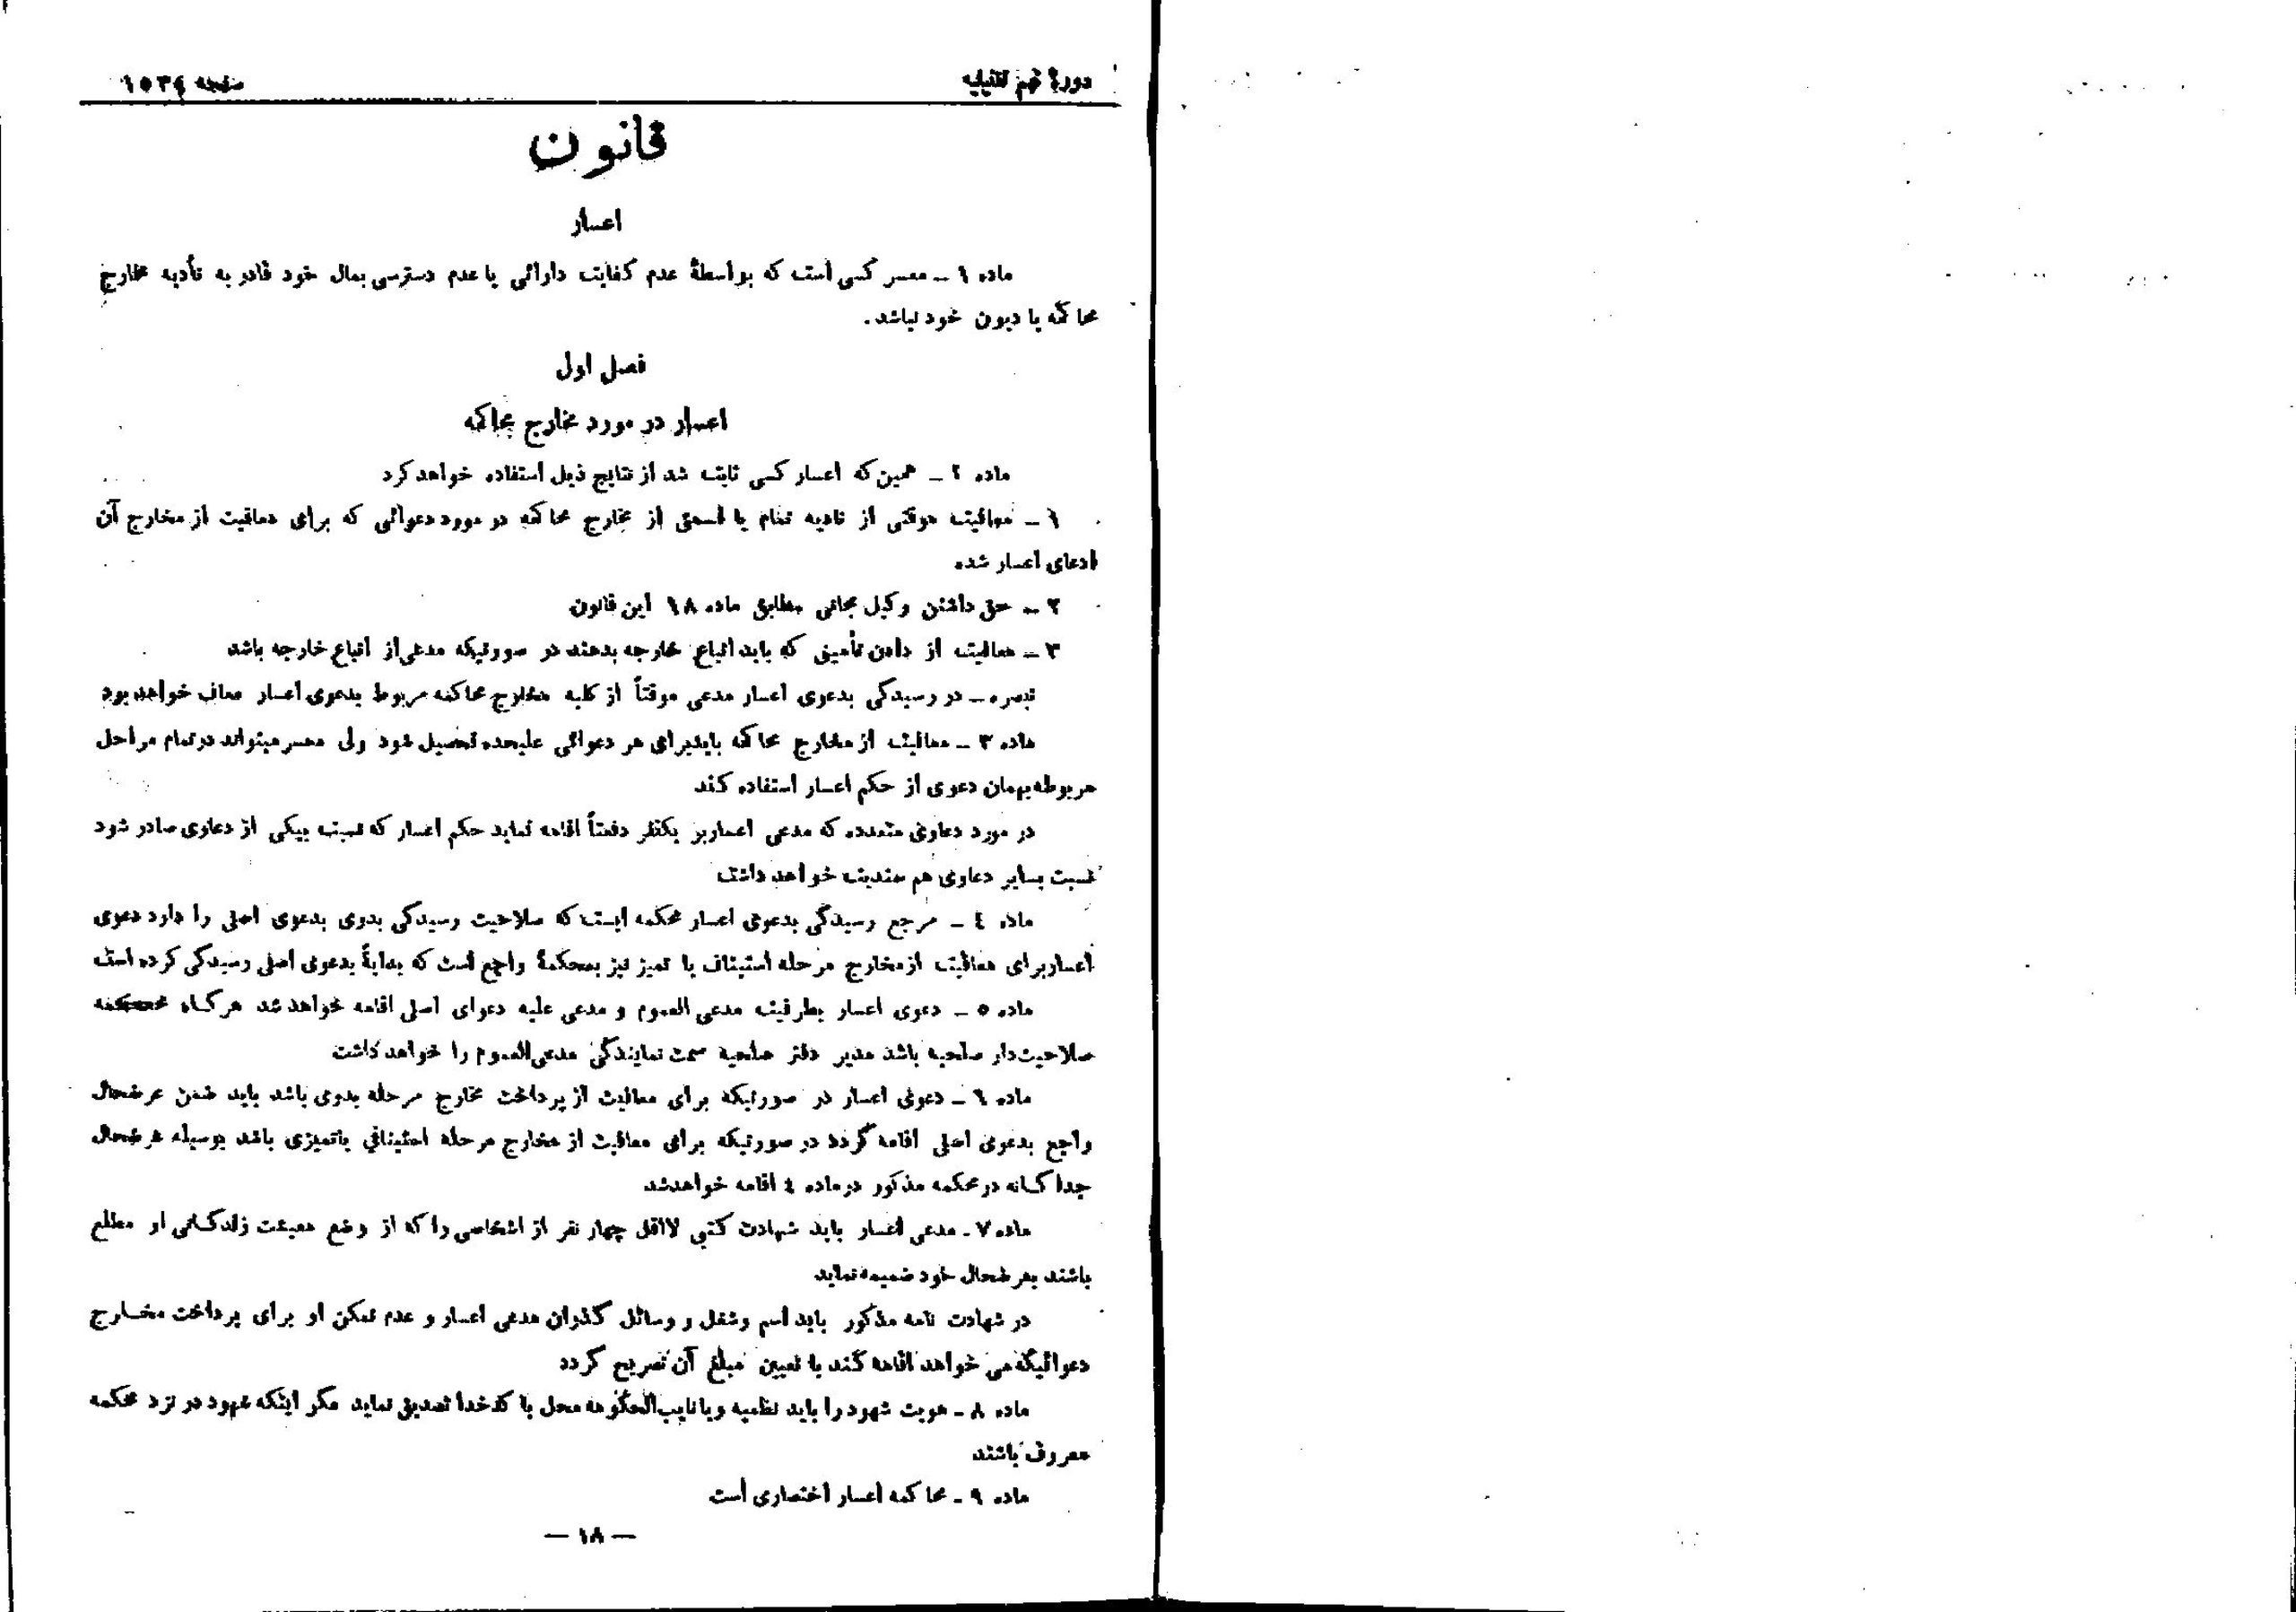 دورهٔ نهم تقنینیه
صفحه ۱۵۳۴
قانون
اعسار
ماده ۱ ـ معسر کسی است که بواسطهٔ عدم کفایت دارائی یا عدم دسترسی بمال خود قادر به تأدیه مخارج
محاکمه یا دیون خود نباشد.
فصل اول
اعسار در مورد مخارج محاکمه
ماده ۲ ـ همین‌که اعسار کسی ثابت شد از نتایج ذیل استفاده خواهد کرد
۱ ـ معافیت موقتی از تادیه تمام یا قسمتی از مخارج محاکمه در مورد دعوائی که برای معافیت از مخارج آن
ادعای اعسار شده
۲ ـ حق داشتن وکیل مجانی مطابق ماده ۱۸ این قانون
۳ ـ معافیت از دادن تأمینی که باید اتباع خارجه بدهند در صورتیکه مدعی از اتباع خارجه باشد
تبصره ـ در رسیدگی بدعوی اعسار مدعی موقتاً از کلیه مخارج محاکمه مربوط بدعوی اعسار معاف خواهد بود
ماده ۳ ـ معافیت از مخارج محاکمه باید برای هر دعوائی علیحده تحصیل شود ولی معسر میتواند در تمام مراحل
مربوطه بهمان دعوی از حکم اعسار استفاده کند
در مورد دعاوی متعدده که مدعی اعسار بر یکنفر دفعتاً اقامه نماید حکم اعسار که نسبت بیکی از دعاوی صادر شود
نسبت بسایر دعاوی هم خواهد داشت
ماده ٤ ـ مرجع رسیدگی بدعوی اعسار محکمه ایست که صلاحیت رسیدگی بدوی بدعوی اصلی را دارد دعوی
اعسار برای معافیت از مخارج مرحله استیناف یا تمیز نیز بمحکمهٔ راجع است که بدایةً بدعوی اصلی رسیدگی کرده است
ماده ۵ ـ دعوی اعسار بطرفیت مدعی العموم و مدعی علیه دعوای اصلی اقامه خواهد شد هرگاه محکمه
صلاحیت‌دار صلحیه باشد مدیر دفتر صلحیه سمت نمایندگی مدعی العموم را خواهد داشت
ماده ٦ ـ دعوی اعسار در صورتیکه برای معافیت از پرداخت مخارج مرحله بدوی باشد باید ضمن عرضحال
راجع بدعوی اصلی اقامه گردد در صورتیکه برای معافیت از مخارج مرحله استینافی یا تمیزی باشد بوسیله عرضحال
جداگانه در محکمه مذکور در ماده ٤ اقامه خواهد شد
ماده ۷ ـ مدعی اعسار باید شهادت کتبی لااقل چهار نفر از اشخاصی را که از وضع معیشت زندگانی او مطلع
باشند بعرضحال خود ضمیمه نماید
در شهادت نامه مذکور باید اسم و شغل و وسائل گذران مدعی اعسار و عدم تمکن او برای پرداخت مخارج
دعوائیکه می خواهد اقامه کند با تعیین مبلغ آن تصریح گردد
ماده ۸ ـ هویت شهود را باید نظمیه و یا نایب الحکومه محل یا کدخدا تصدیق نماید مگر اینکه شهود در نزد محکمه
معروف باشند
ماده ۹ ـ محاکمه اعسار اختصاری است
— ۱۸ —